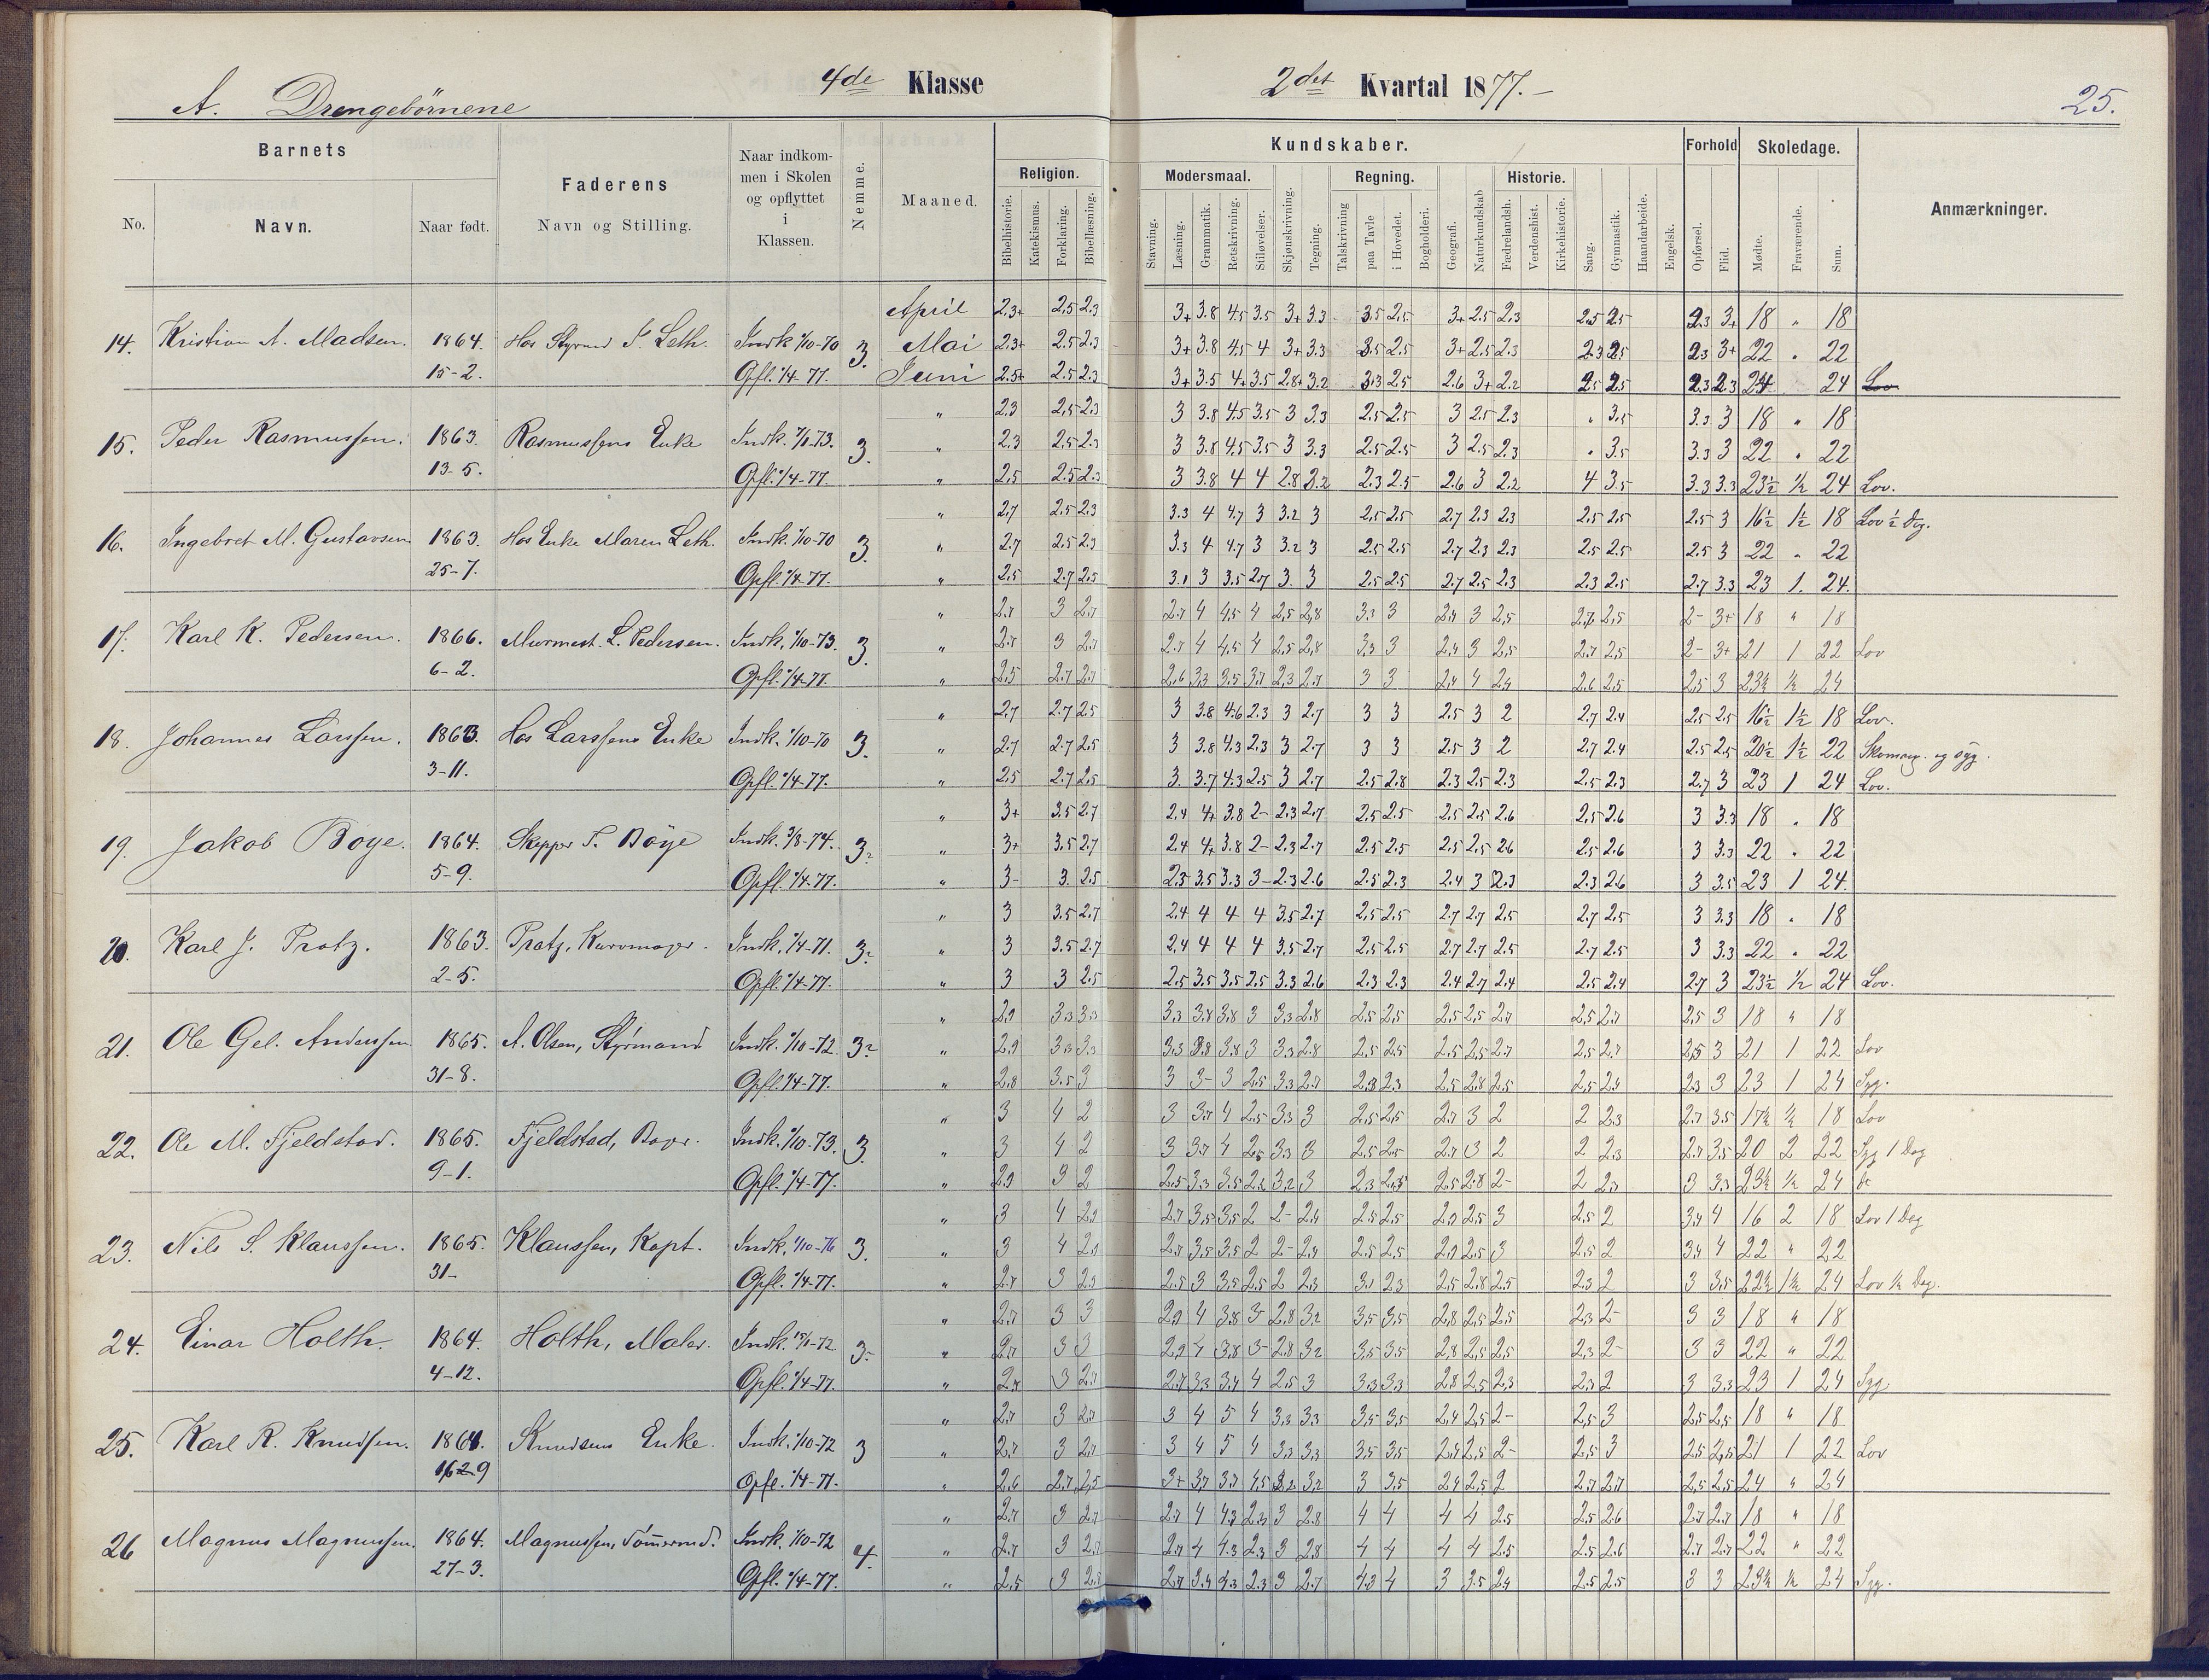 A. Drengebörnene
4de Klasse
2det Kvartal 1877.-
25.
Barnets
No.
Navn.
Naar født.
Faderens
Navn og Stilling.
Naar indkom-
men i Skolen
og opflyttet
i
Klassen.
Nemme.
Maaned.
Kundskaber.
Religion.
Bibelhistorie.
Katekismus.
Forklaring.
Bibellæsning.
Modersmaal.
Stavning.
Læsning.
Grammatik.
Retskrivning.
Stiløvelser.
Skjønskrivning.
Tegning.
Regning.
Talskrivning
paa Tavle
i Hovedet.
Bogholderi.
Geografi.
Naturkundskab
Historie.
Fædrelandsh.
Verdenshist.
Kirkehistorie.
Sang.
Gymnastik.
Haandarbeide.
Engelsk.
Forhold
Opførsel.
Flid.
Skoledage.
Mødte.
Fraværende.
Sum.
Anmærkninger.
April 2.3+ 2.5 2.3 3+ 3.8 4.5 3.5 3+ 3.3 3.5 2.5 3+ 2.5 2.3 2.5 2.5 2.3 3+ 18 " 18
14. Kristian A. Madsen. 1864. Hos Styrmd S. Leth. Indk 1/10-70 3. Mai 2.3+ 2.5 2.3 3+ 3.8 4.5 4 3+ 3.3 3.5 2.5 3+ 2.5 2.3 2.3 2.5 2.3 3+ 22 " 22
15-2. Opfl. 1/4-77. Juni 2.5+ 2.5 2.3 3+ 3.5 4+ 3.5 2.8+ 3.2 3.3 2.5 2.6 3+ 2.2 2.5 2.5 2.3 2.3 24 24 Lov
" 2.3 2.5 2.3 3 3.8 4.5 3.5 3 3.3 2.5 2.5 3 2.5 2.3 " 3.5 3.3 3 18 " 18
15. Peder Rasmussen. 1863. Rasmussens Enke Indk. 7/1-73. 3. " 2.3 2.5 2.3 3 3.8 4.5 3.5 3 3.3 2.5 2.5 3 2.5 2.3 " 3.5 3.3 3 22 " 22
13-5. Opfl. 1/4-77. " 2.5 2.5 2.3 3 3.8 4 4 2.8 3.2 2.3 2.5 2.6 3 2.2 4 3.5 3.3 3.3 23½ ½ 24 Lov.
" 2.7 2.5 2.3 3.3 4 4.7 3 3.2 3 2.5 2.5 2.7 2.3 2.3 2.5 2.5 2.5 3 16½ 1½ 18 Lov ½ Dg.
16. Ingebret M. Gustavsen 1863. Hos Enke Maren Leth. Indk. 1/10-70 3. " 2.7 2.5 2.3 3.3 4 4.7 3 3.2 3 2.5 2.5 2.7 2.3 2.3 2.5 2.5 2.5 3 22 " 22
25-7. Opfl. 1/4-77. " 2.5 2.7 2.5 3.1 3 3.5 2.7 3. 3 2.5 2.5 2.7 2.5 2.3 2.3 2.5 2.7 3.3 23 1. 24.
" 2.7 3 2.7 2.7 4 4.5 4 2.5 2.8 3.3 3 2.4 3 2.5 2.7 2.5 2- 3+ 18 " 18
17. Karl K. Pedersen. 1866. Murmest. L. Pedersen. Indk. 1/10-73. 3. " 2.7 3 2.7 2.7 4 4.5 4 2.5 2.8 3.3 3 2.4 3 2.5 2.7 2.5 2- 3+ 21 1 22 Lov
6-2. Opfl. 1/4-77. " 2.5 2.7 2.7 2.6 3.3 3.5 3.7 2.3 2.7 3 3 2.4 4 2.4 2.6 2.5 2.5 3 23½ ½ 24
" 2.7 2.7 2.5 3 3.8 4.6 2.3 3 2.7 3 3 2.5 3 2 2.7 2.4 2.5 2.5 16½ 1½ 18 Lov.
18. Johannes Larssen. 1863. Hos Larssens Enke Indk. 1/10-70 3. " 2.7 2.7 2.5 3 3.8 4.3 2.3 3 2.7 3 3 2.5 3 2 2.7 2.4 2.5 2.5 20½ 1½ 22 og syg.
3-11. Opfl. 1/4-77. " 2.5 2.7 2.5 3. 3.7 4.3 2.5 3 2.7 2.5 2.8 2.3 2.5 2.3 2.5 2.3 2.7 3 23 1 24 Lov.
" 3+ 3.5 2.7 2.4 4+ 3.8 2- 2.3 2.7 2.5 2.5 2.5 2.5 2.6 2.5 2.6 3 3.3 18 " 18
19. Jakob Böye. 1864. Skipper P. Böye Indk. 3/8-74. 3- " 3+ 3.5 2.7 2.4 4+ 3.8 2- 2.3 2.7 2.5 2.5 2.5 2.5 2.6 2.5 2.6 3 3.3 22 " 22
5-9. Opfl. 1/4-77. " 3- 3. 2.5 2.3 3.5 3.3 3- 2.3 2.6 2.5 2.3 2.4 3 2.3 2.3 2.6 3 3.5 23 1 24.
" 3 3.5 2.7 2.4 4 4 4 3.5 2.7 2.5 2.5 2.7 2.7 2.5 2.7 2.5 3 3.3 18 " 18
20. Karl J. Pratz. 1863. Pratz, Kurvmager. Indk. 1/4-71. 3- " 3 3.5 2.7 2.4 4 4 4 3.5 2.7 2.5 2.5 2.7 2.7 2.5 2.7 2.5 3 3.3 22 " 22
2-5. Opfl. 1/4-77. " 3 3 2.5 2.5 3.5 3.5 2.5 3.3 2.6 2.3 2.3 2.4 2.7 2.4 2.5 2.4 2.7 3 23½ ½ 24 Lov.
" 2.9 3.3 3.3 3.3 3.8 3.8 3 3.3 2.8 2.5 2.5 2.5 2.5 2.7 2.5 2.7 2.5 3 18 " 18
21. Ole Gel. Anderssen 1865. A. Olsen, Styrmand Indk. 1/10-72. 3- " 2.9 3.3 3.3 3.3 3.8 3.8 3 3.3 2.8 2.5 2.5 2.5 2.5 2.7 2.5 2.7 2.5 3 21 1 22 Lov
31-8. Opfl. 1/4-77. " 2.8 3.5 3 3 3- 3 2.5 3.3 2.7 2.3 2.3 2.5 2.8 2.5 2.5 2.4 2.3 3 23 1 24 Syg.
" 3 4 2 3 3.7 4 2.5 3.3 3 2.5 2.5 2.7 3 2 2 2.3 2.7 3.5 17½ ½ 18 Lov
22. Ole M. Fjeldstad. 1865. Fjeldstad, Bager. Indk. 1/10-73. 3. " 3 4 2 3 3.7 4 2.5 3.3 3 2.5 2.5 2.7 3 2 2 2.3 2.7 3.5 20 2 22 Syg 1 Dag
9-1. Opfl. 1/4-77. " 2.9 3 2 2.5 3.3 3.5 2.2 3.2 3 2.3 2.5 2.5 2.8 2- 2 2.3 3 3.3 23½ ½ 24
" 3 4 2.9 2.7 3.5 3.5 2 2- 2.4 2.5 2.5 2.9 2.5 3 2.5 2 3.4 4 16 2 18 Lov 1 Dag
23. Nils S. Klaussen. 1865. Klaussen, Kapt. Indk. 1/10-76 3. " 3 4 2.9 2.7 3.5 3.5 2 2- 2.4 2.5 2.5 2.9 2.5 3 2.5 2 3.4 4 22 " 22
31- Opfl. 1/4-77. " 2.7 3 2.3 2.5 3 3.5 2.5 2 2.3 3.1 2.3 2.5 2.8 2.5 2.3 2 3 3.5 22½ 1½ 24 Lov ½ Dag.
" 2.7 3 3 2.9 4 3.8 3- 2.8 3.2 3.5 3.5 2.8 2.5 2.5 2.3 2- 3 3 18 " 18
24. Einar Holth. 1864. Holth, Maler. Indk. 15/1-72. 3- " 2.7 3 3 2.9 4 3.8 3- 2.8 3.2 3.5 3.5 2.8 2.5 2.5 2.3 2- 3 3 22 " 22
4-12. Opfl. 1/4-77. " 2.7 3 2.7 2.7 3.3 3.4 4 2.5 3 3.3 3.3 2.8 2.5 2.3 2.3 2 3 3.3 23 1 24 Syg
" 2.7 3 2.7 3 4 5 4 3.3 3.3 3.5 3.5 2.4 2.5 2- 2.5 3 2.5 2.5 18 " 18
25. Karl R. Knudsen. 1864. Knudsens Enke. Indk. 1/10-72 3 " 2.7 3 2.7 3 4 5 4 3.3 3.3 3.5 3.5 2.4 2.5 2- 2.5 3 2.5 2.5 21 1 22 Lov
Opfl. 1/4-77. " 2.6 2.7 2.5 3+ 3.7 3.7 4.5 3.2 3.2 3 3.5 2.4 2.5 2 2.7 2.7 2.5 2.5 24 " 24
" 2.7 3 2.7 2.7 4 4.3 2.3 3 2.8 4 4 4 4 2.5 2.5 2.6 2.7 2.7 18 " 18
26 Magnus Magnussen. 1864. Magnussen, Tömermd. Indk. 1/10-72 4. " 2.7 3 2.7 2.7 4 4.3 2.3 3 2.8 4 4 4 4 2.5 2.5 2.6 2.7 2.7 22 " 22
27-3. Opfl. 1/4-77. " 2.5 3 2.5 2.7 3.4 4.3 2.3 3 2.7 4.3 4 3 3.5 2.4 2.5 2.5 3 3 23½ ½ 24 Syg.